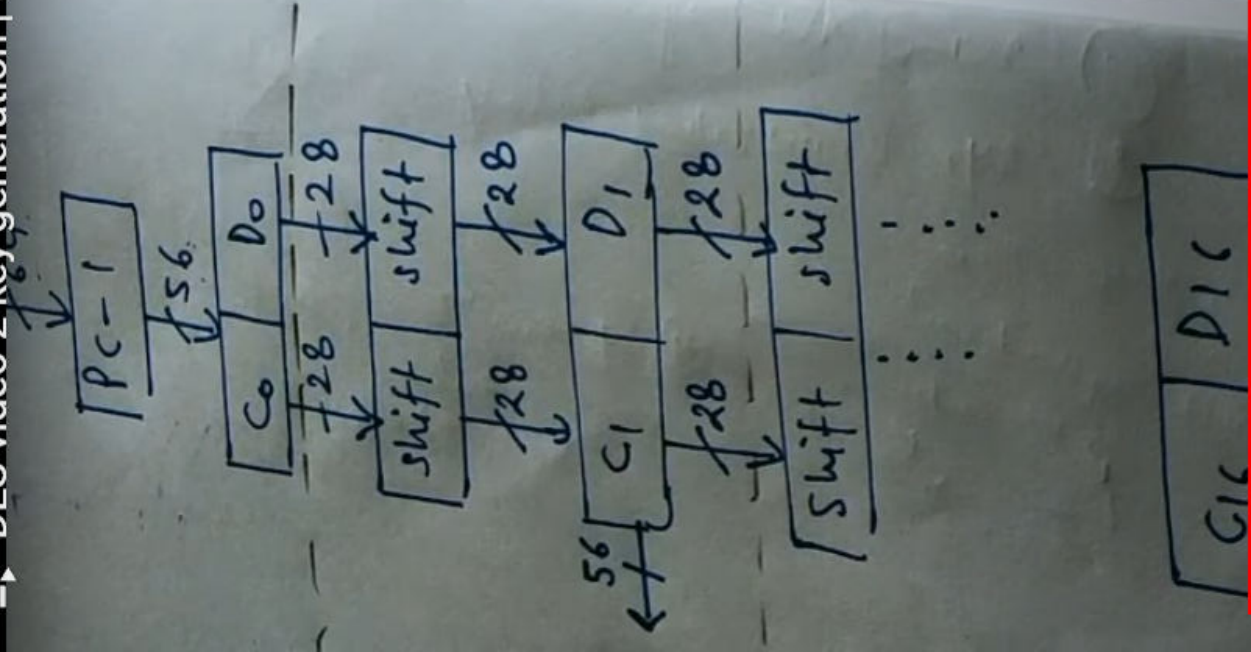 DES Video 2 Key generation |
PC-1
56
C0 D0
28 28
shift shift
28 28
C1 D1
56
28 28
shift shift
C16 D16